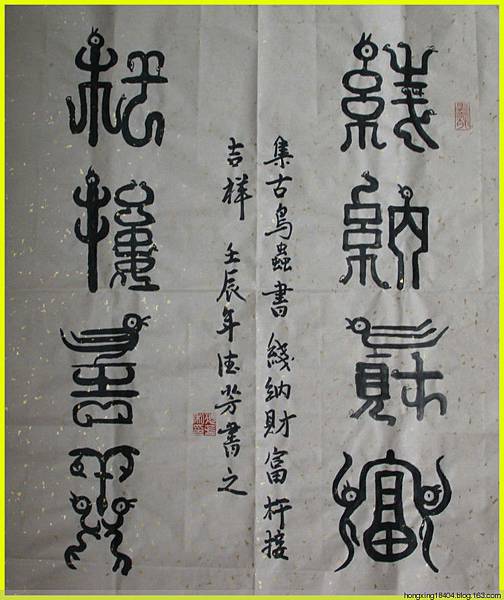 綫納財富
集古鳥蟲書 綫納財富 接
吉祥 壬辰年德芳書之
接吉祥
hongxing18404.blog.163.com